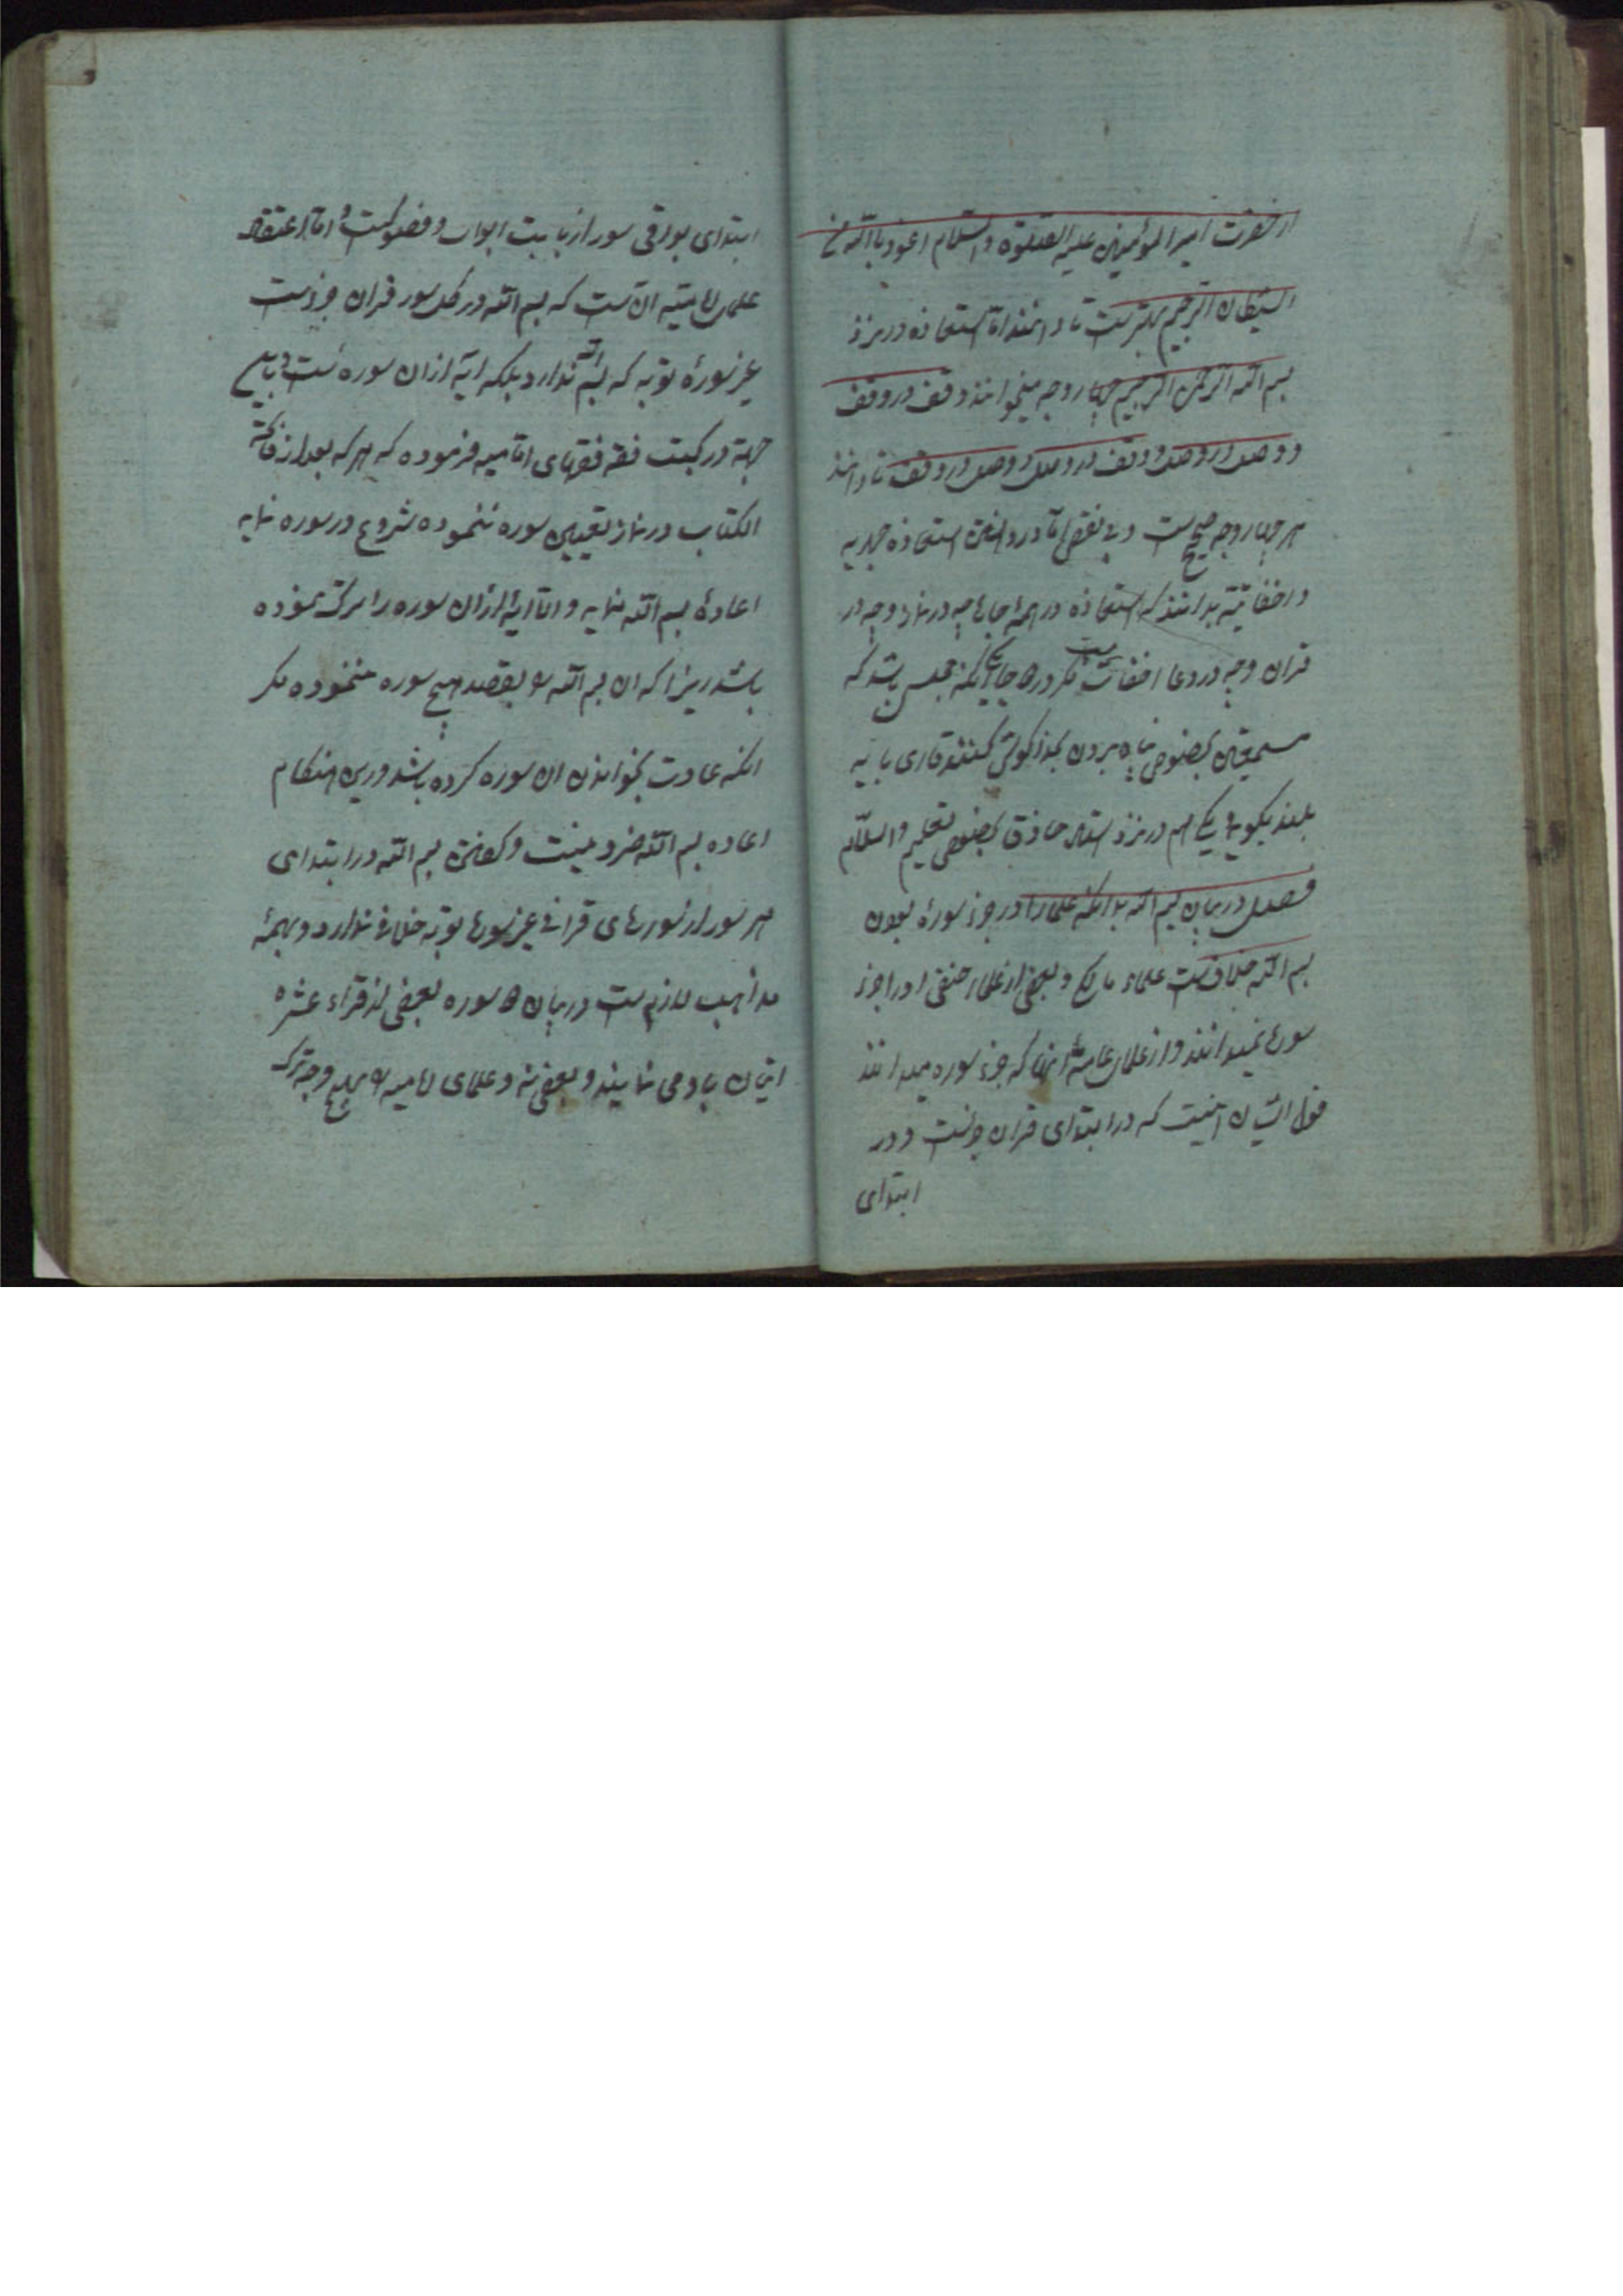 از حضرت امیر المؤمنین علیه الصلوة و السلام اعوذ باالله من
الشیطان الرجیم بهترست تا دانند اما استعاذه در نزد
بسم الله الرحمن الرحیم چهار وجه میخوانند وقف در وقف
و وصل در وصل و وقف در وصل و وصل در وقف تا دانند
هر چهار وجه صحیح ست و بی نقص اما در دانستن استعاذه جهریه
و اخفائیه بدانند که استعاذه در همه جاها چه در نماز و چه در
قران و چه در دعا اخفات ست مکر در دو جا یکی آنکه مجلسی باشد که
مستمعین بخصوص پناه بردن بخدا کوش کنند قاری باید
بلند بکوید و یکی هم در نزد استاد حاذق بخصوص تعلیم والسلام
فصل در بیان بسم الله بدانکه علما را در جزء سورهٔ بودن
بسم الله خلاف ست علماء مالکی و بعضی از علماء حنفی او را جزء
سوره نمیدانند و از علمای عامهٔ آنها که جزء سوره میدانند
قول ایشان اینست که در ابتدای قران جزءست و در
ابتدای
ابتدای بواقی سور از بابت ابواب و فصولست و اما اعتقاد
علمای امامیه ان ست که بسم الله در کل سور قران جزءست
غیر سورهٔ توبه که بسم الله ندارد بلکه ایه از ان سوره ست و باین
جهة در کتب فقه فقهای امامیه فرموده که هر که بعد از فاتحة
الکتاب در نماز تعیین سوره ننموده شروع در سوره نماید
اعادهٔ بسم الله نماید و الا ایهٔ از ان سوره را ترک نموده
باشد زیرا که ان بسم الله را بقصد هیچ سوره ننموده مکر
انکه عادت بخواندن ان سوره کرده باشد درین هنکام
اعاده بسم الله ضرور نیست و کفتن بسم الله در ابتدای
هر سور از سورهای قرانی غیر سورهٔ توبه خلافی ندارد و بهمهٔ
مذاهب لازم ست در میان دو سوره بعضی از قراء عشره
اتیان باو می نمایند و بعضی نه و علمای امامیه بهیچ وجه ترک